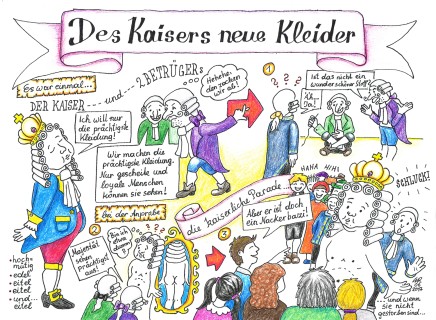 Des Kaisers neue Kleider
Es war einmal...
DER KAISER --- und --- 2 BETRÜGER
Ich will nur
die prächtigste
Kleidung!
Hehehe,
den zocken
wir ab!
Wir machen die
prächtigste Kleidung.
Nur gescheite und
loyale Menschen
können sie sehen!
1
? ? ?
Ist das nicht ein
wunderschöner Stoff?
Ja!
Bei der Anprobe
2
Majestät
sehen
prächtigst
aus!
? ? ?
hoch-
mütig
edel
eitel
eitel
und...
eitel
die kaiserliche Parade...
3
HAHA HIHI
Aber er ist doch
ein Nackerbazi!
SCHLUCK!
...und wenn
sie nicht
gestorben sind...